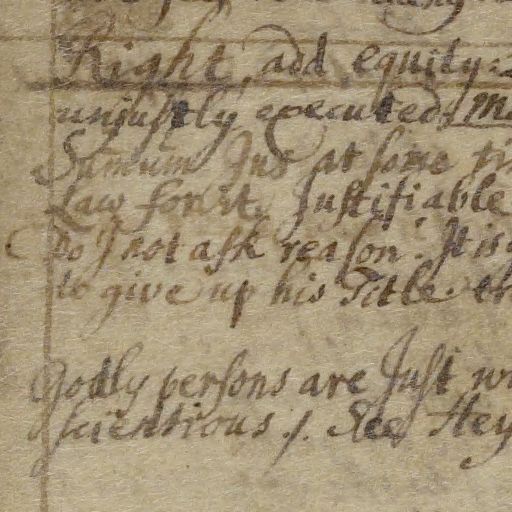 Right, add equity:
unjustly executed. M
Sumum Jus at some ti
Law for it. Justifiable
Do J not ask reason. It is
to give up his Title. th
Godly persons are Just wi
scientious /. See Hey